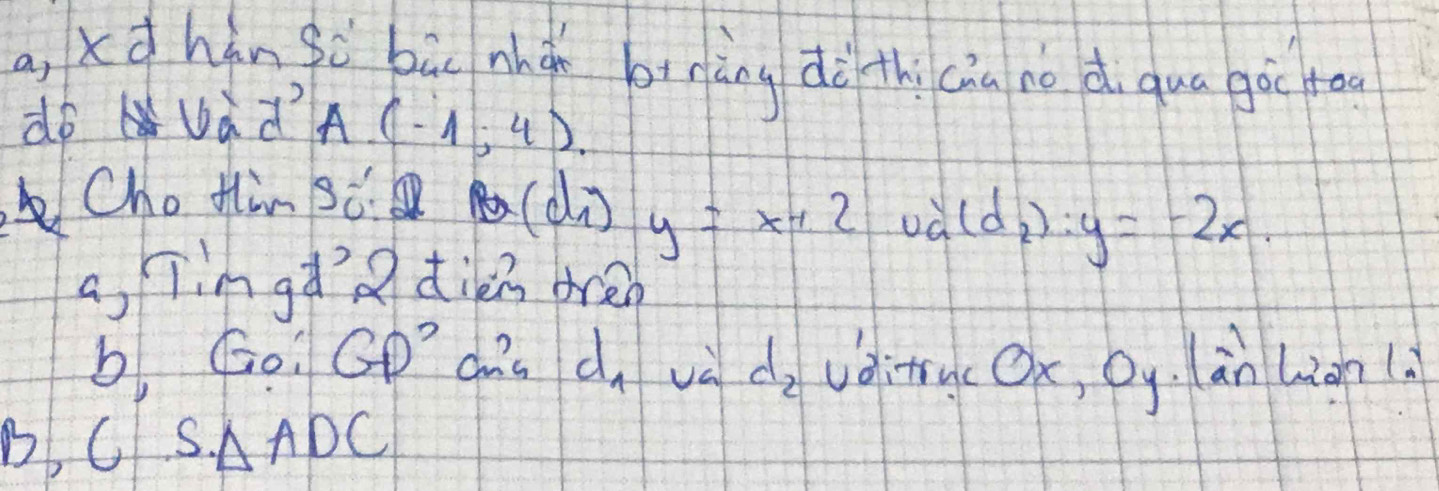 a, xđ hàm số bậc nhất bt rằng đồ thị của nó đi qua gốc toạ
độ và đ' A (-1; 4).
Cho Hàm số (d1) y = x+2 và (d2): y = -2x.
a, Tìm gđ' 2 điểm trên
b, Gọi GĐ' của d1 và d2 với trục Ox, Oy. lần lượt là
B, C S.Δ ADC